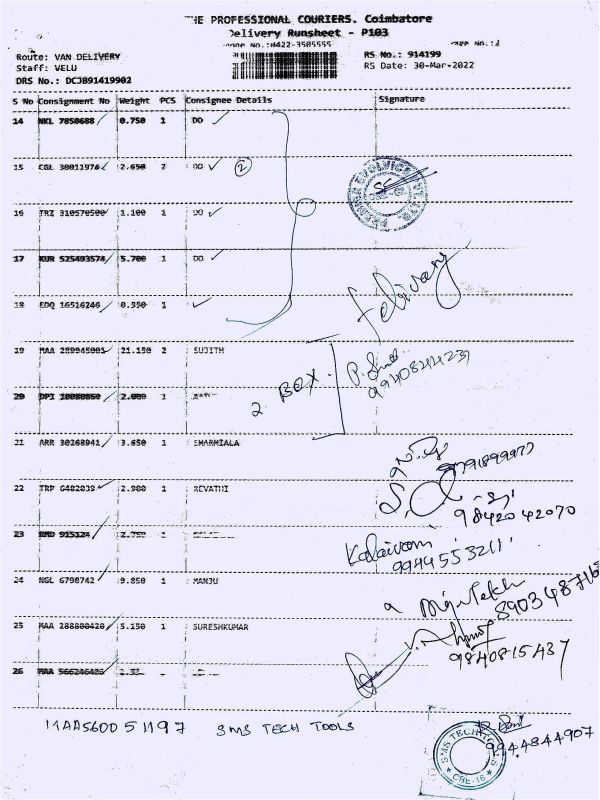 THE PROFESSIONAL COURIERS. Coimbatore
Delivery Runsheet - P103
Phone No.:0422-3505555
Route: VAN DELIVERY
Staff: VELU
DRS No.: DCJB91419902
RS No.: 914199
RS Date: 30-Mar-2022
S No Consignment No Weight PCS Consignee Details Signature
14 NKL 7850688 0.750 1 DO
15 CGL 30011974 2.650 2 DO 2
16 TRZ 310570500 1.100 1 DO
17 KUR 525493574 5.700 1 DO
18 EDQ 16516246 0.550 1
19 MAA 289945001 21.150 2 SUJITH
2 BOX
20 DPI 10080860 2.000 1
21 ARR 30268941 3.650 1 SHARMIALA
22 TRP 6482039 2.900 1 REVATHI
9842042070
23 NMD 915124 2.750 1
Kalaivani
9944553211
24 NGL 6798742 9.850 1 MANJU
25 MAA 288800420 5.150 1 SURESHKUMAR
9840815437
26 MAA 566246426 1
MAA560051197 SMS TECH TOOLS
SMS TECH TOOLS
CBE-16
9944844907